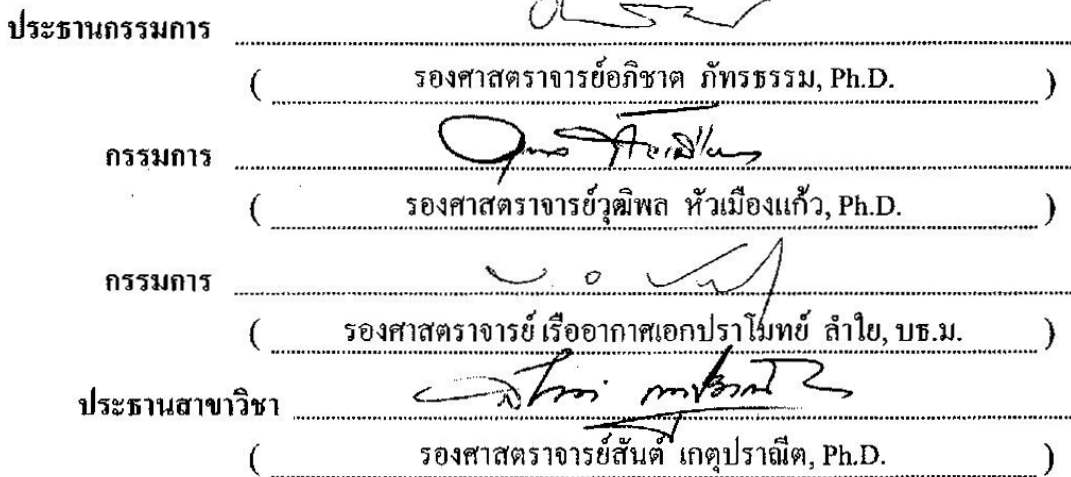 ประธานกรรมการ
( รองศาสตราจารย์อภิชาต ภัทรธรรม, Ph.D. )
กรรมการ
( รองศาสตราจารย์วุฒิพล หัวเมืองแก้ว, Ph.D. )
กรรมการ
( รองศาสตราจารย์ เรืออากาศเอกปราโมทย์ ลำใย, บธ.ม. )
ประธานสาขาวิชา
( รองศาสตราจารย์สันต์ เกตุปราณีต, Ph.D. )